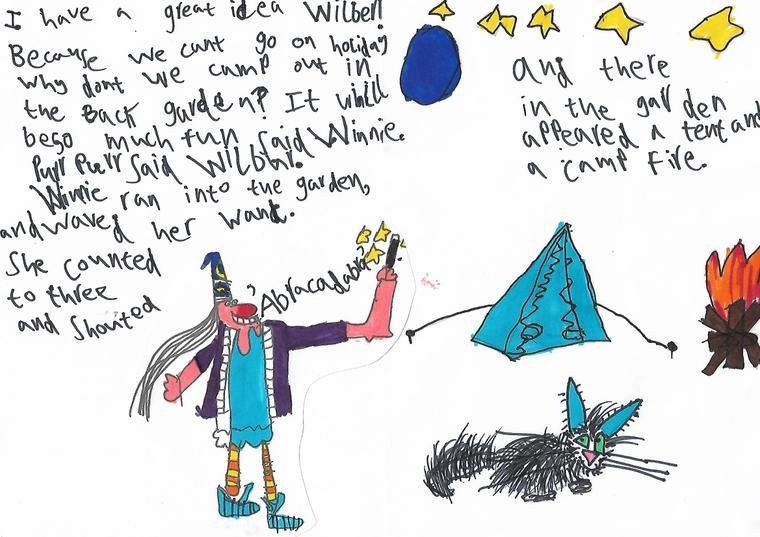 I have a great idea Wilber!
Because we cant go on holiday
why dont we camp out in
the back garden? It will
beso much fun said Winnie.
Purr Purr said Wilbur.
Winnie ran into the garden,
and waved her wand.
She counted
to three
and shouted
'Abracadabra'
and there
in the garden
appeared a tent and
a camp fire.